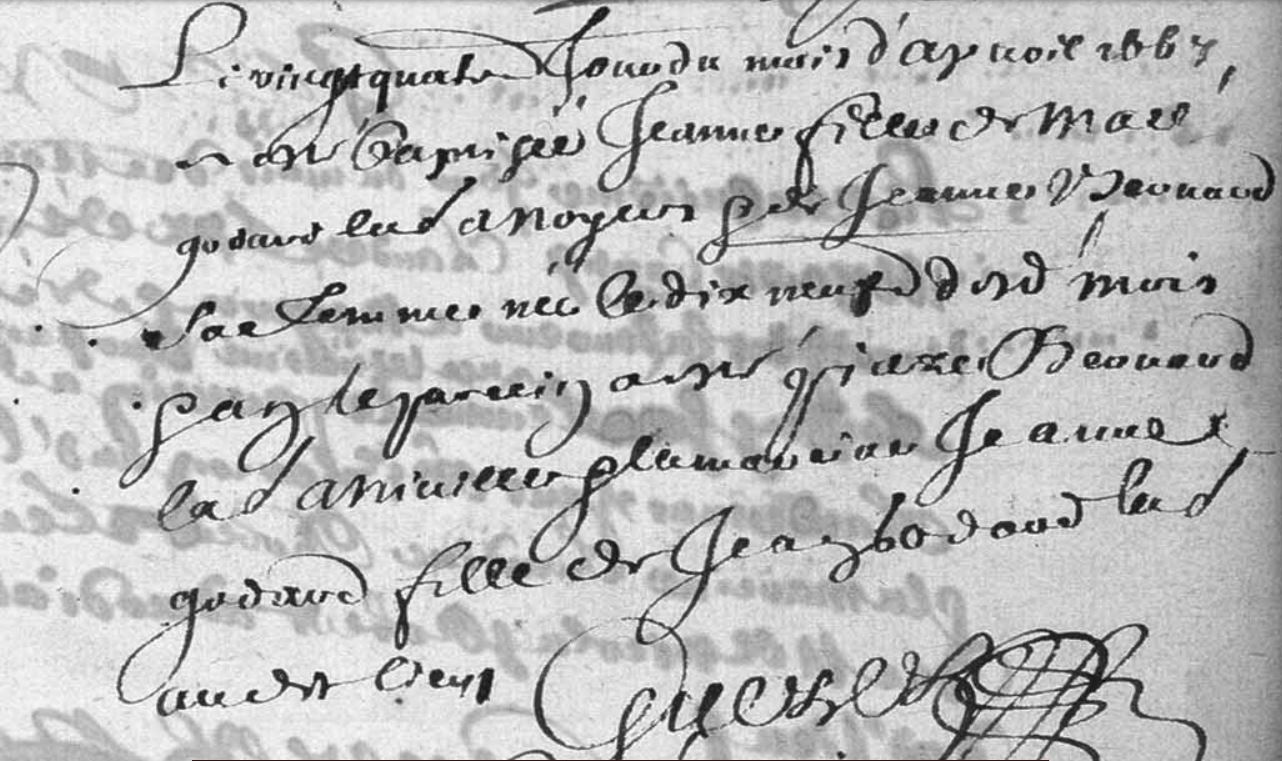 Le vingt quatre Jour du mois d'apvril 1667
a esté baptisée Jeanne fille de Marc
godard lab a noyers par Jeanne Renouard
sa femme née le dix neuf dud mois
pan le parein a esté Renouard
lab a la mareine Jeanne
godard fille de Jean godard lab
audit lieu